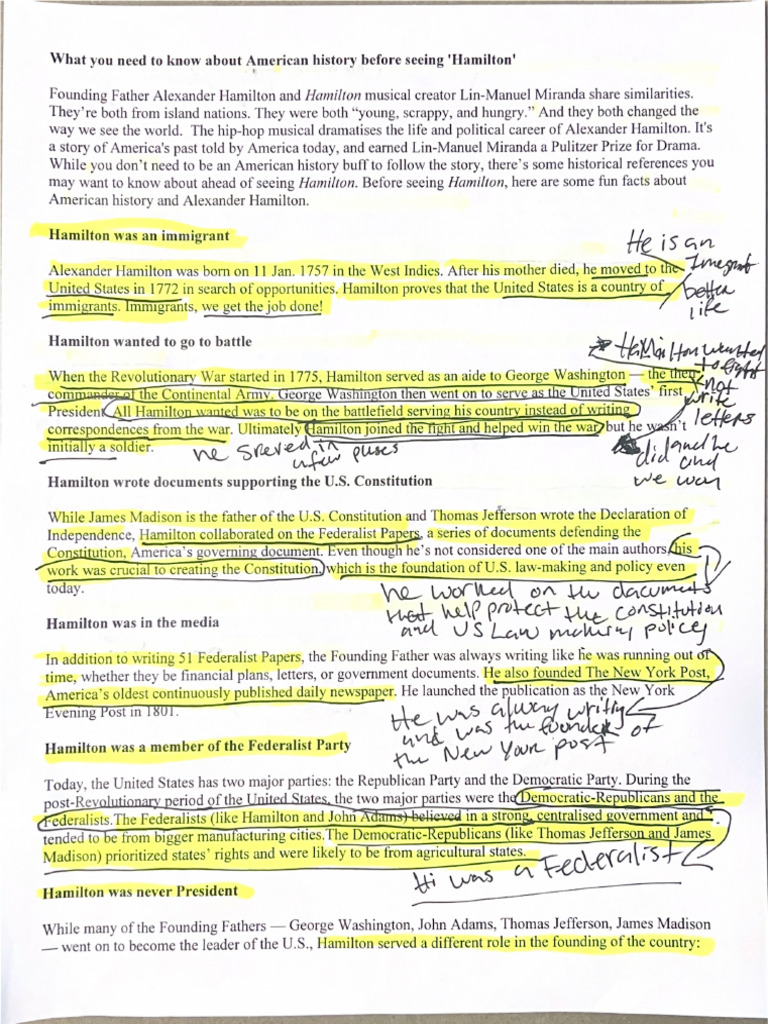 What you need to know about American history before seeing 'Hamilton'
Founding Father Alexander Hamilton and Hamilton musical creator Lin-Manuel Miranda share similarities.
They're both from island nations. They were both "young, scrappy, and hungry." And they both changed the
way we see the world. The hip-hop musical dramatises the life and political career of Alexander Hamilton. It's
a story of America's past told by America today, and earned Lin-Manuel Miranda a Pulitzer Prize for Drama.
While you don't need to be an American history buff to follow the story, there's some historical references you
may want to know about ahead of seeing Hamilton. Before seeing Hamilton, here are some fun facts about
American history and Alexander Hamilton.
Hamilton was an immigrant
He is an
Imegrant
better
life
Alexander Hamilton was born on 11 Jan. 1757 in the West Indies. After his mother died, he moved to the
United States in 1772 in search of opportunities. Hamilton proves that the United States is a country of
immigrants. Immigrants, we get the job done!
Hamilton wanted to go to battle
HaMilton wanted
to fight
not
write
letters
did and he
did and
we won
When the Revolutionary War started in 1775, Hamilton served as an aide to George Washington — the then
commander of the Continental Army. George Washington then went on to serve as the United States' first
President. All Hamilton wanted was to be on the battlefield serving his country instead of writing
correspondences from the war. Ultimately Hamilton joined the fight and helped win the war, but he wasn't
initially a soldier.
he sreved in
a few
Hamilton wrote documents supporting the U.S. Constitution
While James Madison is the father of the U.S. Constitution and Thomas Jefferson wrote the Declaration of
Independence, Hamilton collaborated on the Federalist Papers, a series of documents defending the
Constitution, America's governing document. Even though he's not considered one of the main authors, his
work was crucial to creating the Constitution, which is the foundation of U.S. law-making and policy even
today.
he worked on the documents
that help protect the constitution
and US Law making policy
Hamilton was in the media
In addition to writing 51 Federalist Papers, the Founding Father was always writing like he was running out of
time, whether they be financial plans, letters, or government documents. He also founded The New York Post,
America's oldest continuously published daily newspaper. He launched the publication as the New York
Evening Post in 1801.
He was alway writing
and was the founder of
the New Your post
Hamilton was a member of the Federalist Party
Today, the United States has two major parties: the Republican Party and the Democratic Party. During the
post-Revolutionary period of the United States, the two major parties were the Democratic-Republicans and the
Federalists.The Federalists (like Hamilton and John Adams) believed in a strong, centralised government and
tended to be from bigger manufacturing cities.The Democratic-Republicans (like Thomas Jefferson and James
Madison) prioritized states' rights and were likely to be from agricultural states.
Hi was a Federalist
Hamilton was never President
While many of the Founding Fathers — George Washington, John Adams, Thomas Jefferson, James Madison
— went on to become the leader of the U.S., Hamilton served a different role in the founding of the country: